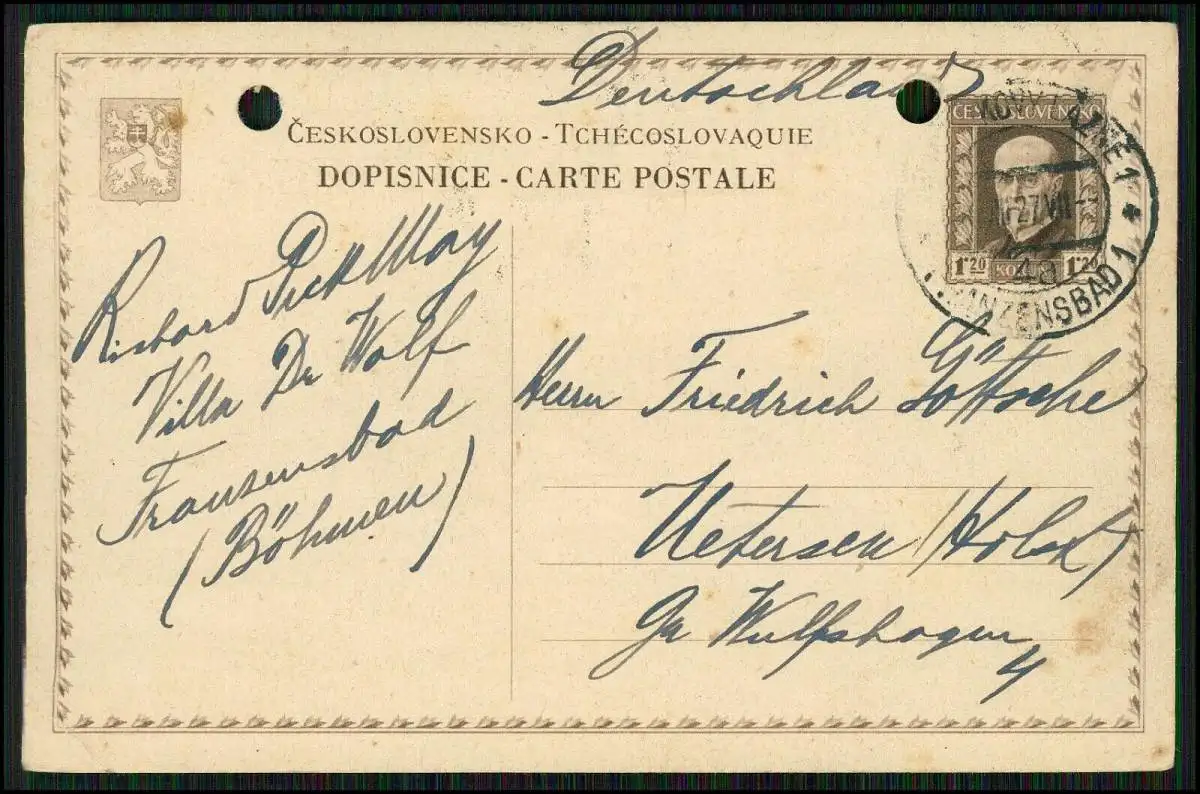 Deutschland
ČESKOSLOVENSKO - TCHÉCOSLOVAQUIE
DOPISNICE - CARTE POSTALE
ČESKOSLOVENSKO
1'20 1'20
27.VII
NZENSBAD 1
Richard Pick May
Villa De Wolf
Fransensbad
(Böhmen)
Herrn Friedrich Göttsche
Uetersen (Holst)
Gr Wulfshagen
4